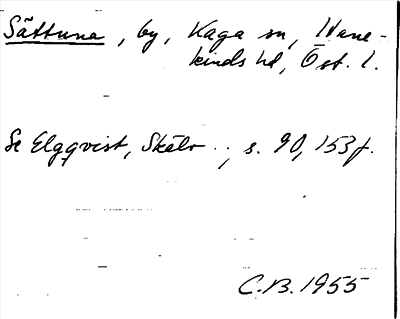 Sättuna, by, Kaga sn, Hane-
kinds hd, Öst. l.
Se Elgqvist, Skälv.., s. 90, 153f.
C.B. 1955